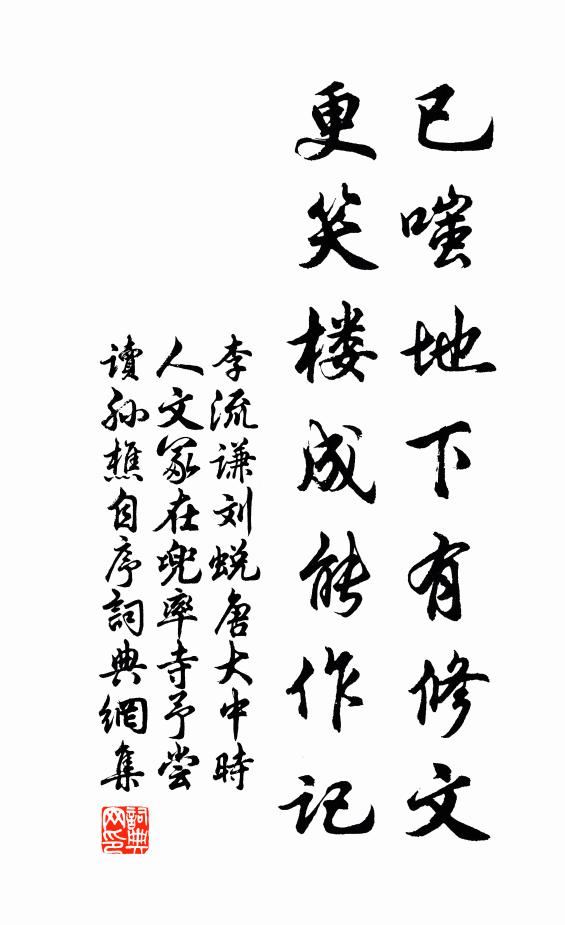 已嗤地下有修文
更笑楼成能作记
李流谦刘蜕唐大中时
人文冢在兜率寺予尝
读孙樵自序词典网集
詞典
网印